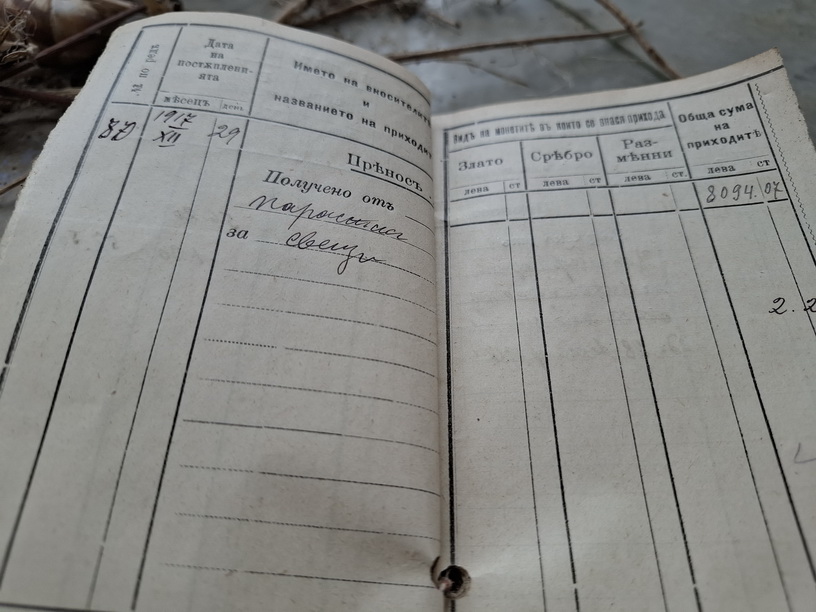 № по редъ
Дата
на
постѫплени-
ята
мѣсецъ день
Името на вносителитѣ
и
названието на приходитѣ
87 1917 29
XII
Прѣносъ
Получено отъ
за свещи
Видъ на монетитѣ въ които се внася прихода
Злато
Срѣбро
Раз-
мѣнни
Обща сума
на
приходитѣ
лева ст лева ст лева ст. лева ст
8094.07
2.2